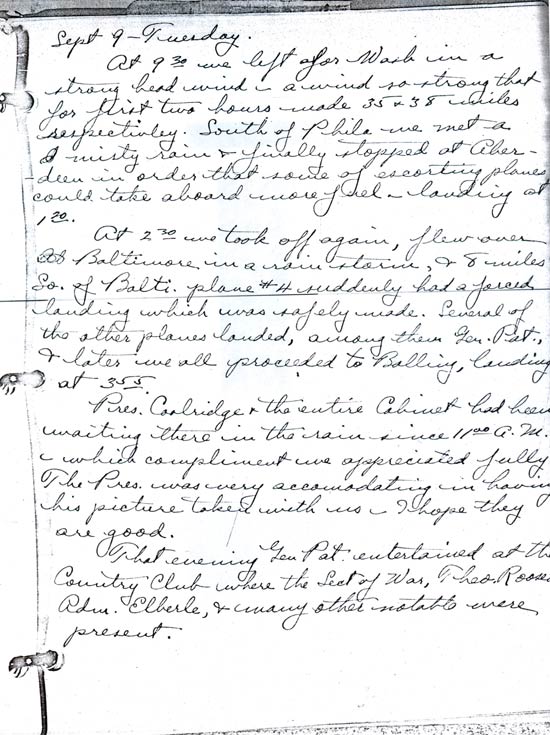 Sept 9 - Tuesday.
At 9 30 we left for Wash in a
strong head wind - a wind so strong that
for first two hours made 35 & 38 miles
respectivley. South of Phila we met a
misty rain & finally stopped at Aber-
-deen in order that some of escorting planes
could take aboard more fuel - landing at
1 20.
At 2 30 we took off again, flew over
Baltimore in a rain storm, & 8 miles
So. of Balti. plane #4 suddenly had a forced
landing which was safely made. Several of
the other planes landed, among them Gen. Pat.,
& later we all proceeded to Bolling, landing
at 3 55.
Pres. Coolridge & the entire Cabinet had been
waiting there in the rain since 11 00 A.M.
- which compliment we appreciated fully
The Pres. was very accomodating in having
his picture taken with us - I hope they
are good.
That evening Gen Pat. entertained at the
Country Club where the Sect of War, Theo. Roose
Adm. Elberle, & many other notable were
present.